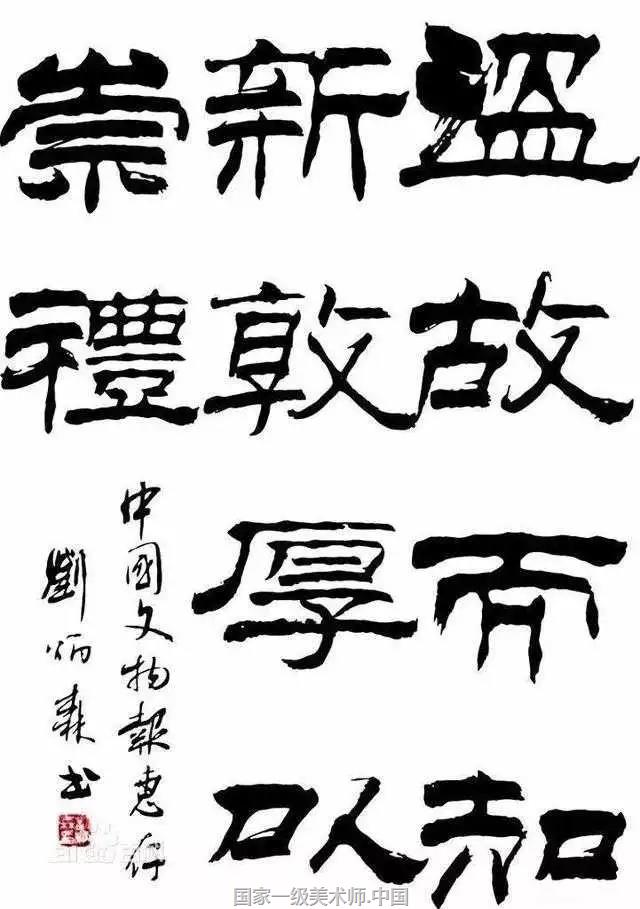 溫故而知
新敦厚㠯
崇禮
中國文物報惠存
劉炳森書
国家一级美术师.中国